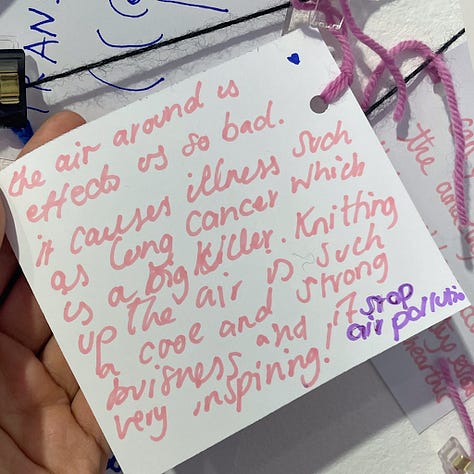 the air around us
effects us so bad.
it causes illness such
as lung cancer which
is a big killer. Knitting
up the air is such
a cool and strong
buisness and
very inspining!
stop
air pollutio